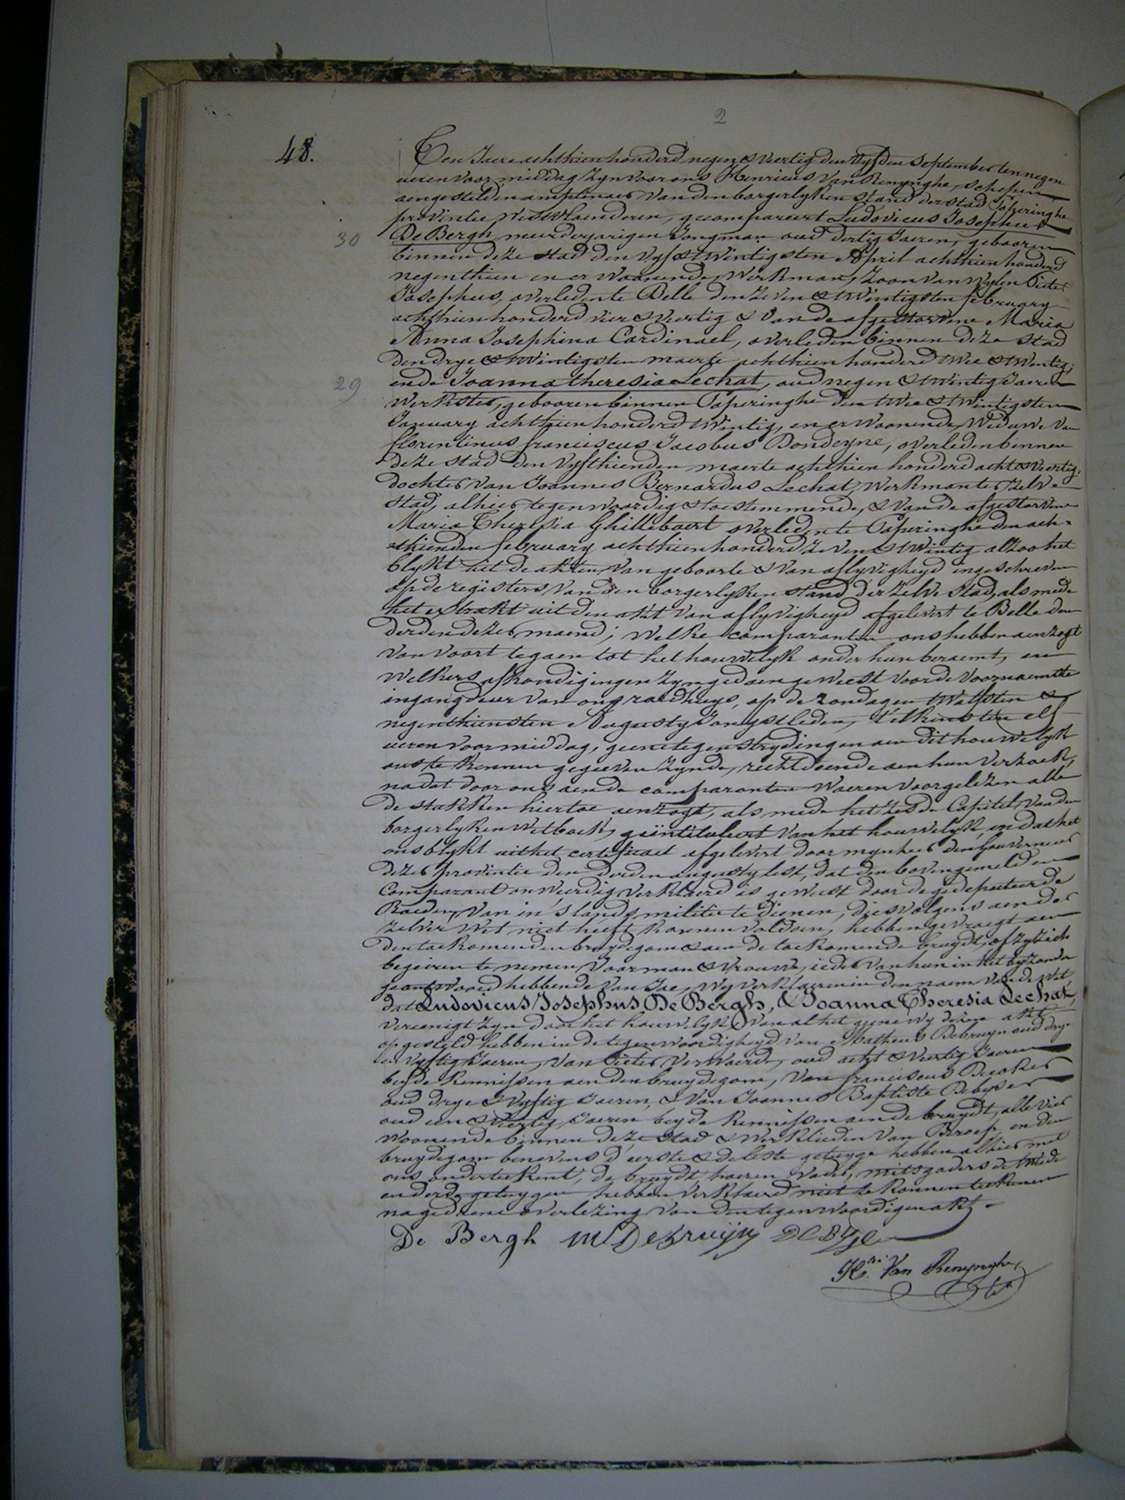 2
48.
Ten Jaere achthien honderd negen & veertig den vyfden September ten negen
ueren voor middag zyn voor ons Henricus Van Renynghe, schepen
aengestelden amptenaer van den borgerlyken stand der stad Poperinghe
provintie Westvlaenderen, gecompareert Ludovicus Josephus
30
De Bergh meerderjarigen jongman oud dertig Jaeren, gebooren
binnen deze stad den vyf & twintigsten April achthien honderd
negenthien en er woonende, werkman, zoon van wylen Pieter
Josephus, overleden te Belle den zeven & twintigsten february
achthien honderd vier & veertig & van de afgestorvene Maria
Anna Josephina Cardinael, overleden binnen deze stad
den drye & twintigsten maerte achthien honderd twee & twintig,
29
ende Joanna theresia Lechat, oud negen & twintig Jaeren
werkster, gebooren binnen Poperinghe den twee & twintigsten
January achthien honderd twintig, en er woonende, Weduwe van
florentinus franciscus Jacobus Dondeyne, overleden binnen
deze stad den vyfthienden maerte achthien honderd acht & veertig,
dochter van Joannes Bernardus Lechat, werkman ter zelve
stad, alhier tegenwoordig & toestemmende, & van de afgestorvene
Maria Theresia Ghillebaert overleden te Poperinghe den ach-
thienden february achthien honderd zeven & twintig alzoo het
blykt uit de akten van geboorte & van aflyvigheyd ingeschreven
op de registers van den borgerlyken stand der zelve stad, als mede
het extrakt uit den akt van aflyvigheyd afgelevert te Belle den
derden dezer maend; welke comparanten ons hebben aenzogt
van voort te gaen tot het houwelyk onder hun beraemt, en
welkers afkondigingen zyn gedaen geweest voor de voornaemste
ingangdeur van ons raedhuys, op de zondagen twalfsten &
negenthiensten Augusty jongstleden, telkens ten elf
ueren voor middag, geene tegenstrydingen aen dit houwelyk
ons te kennen gegeven zynde, recht doende aen hun verzoek,
na dat door ons aen de comparanten waeren voorgelezen alle
de stukken hier toe aenzogt, als mede het zesde Capitel van den
borgerlyken wetboek, geïntituleert van het houwelyk, en dat het
ons blykt uit het certificaet afgelevert door mynheer den gouverneur
dezer provintie den derden augusty lest, dat den bovengemelden
Comparant onweerdig verklaerd is geweest door de gedeputeerde
Raeden van in 's lands militie te dienen, diesvolgens aen de
zelve wet niet heeft konnen voldoen, hebben gevraegt aen
den toekomenden bruydegom & aen de toekomende bruydt, of zy zich
begeiren te nemen voor man & vrouwe, ieder van hun in het byzonder
geantwoord hebbende van Jae, wy verklaeren in den naem van de wet
dat Ludovicus Josephus De Bergh, & Joanna Theresia Lechat,
vereenigt zyn door het houwelyk; van al het gene wy dezen akt
opgesteld hebben in de tegenwoordigheyd van Matheus Debruyn oud drye
en vyftig Jaeren, van Pieter Verwaerde, oud acht & veertig Jaeren
beyde kennissen aen den bruydegom, van franciscus Decoker
oud drye & vyftig Jaeren, & van Joannes Baptiste Debyser
oud een & veertig Jaeren beyde kennissen aen de bruydt, alle vier
woonende binnen deze stad & werklieden van Beroep, en den
bruydegom benevens d'eerste & de leste getuyge hebben alhier met
ons onderteekent, de bruydt, haeren vader, mitsgaders de tweede
en derde getuygen hebben verklaerd niet te konnen teekenen
na gedaene overlezing van den tegenwoordigen akt.
De Bergh M Debruyn De Byse
Hri Van Renynghe